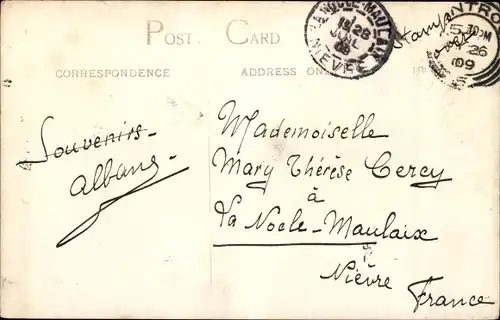 POST CARD
CORRESPONDENCE
ADDRESS ON
LA NOCLE-MAULAIX
NIEVRE
Stamp
over
5.30PM
26
09
Souvenirs-
Albane-
Mademoiselle
Mary Thérèse Cercy
à
La Nocle-Maulaix
Nièvre
France